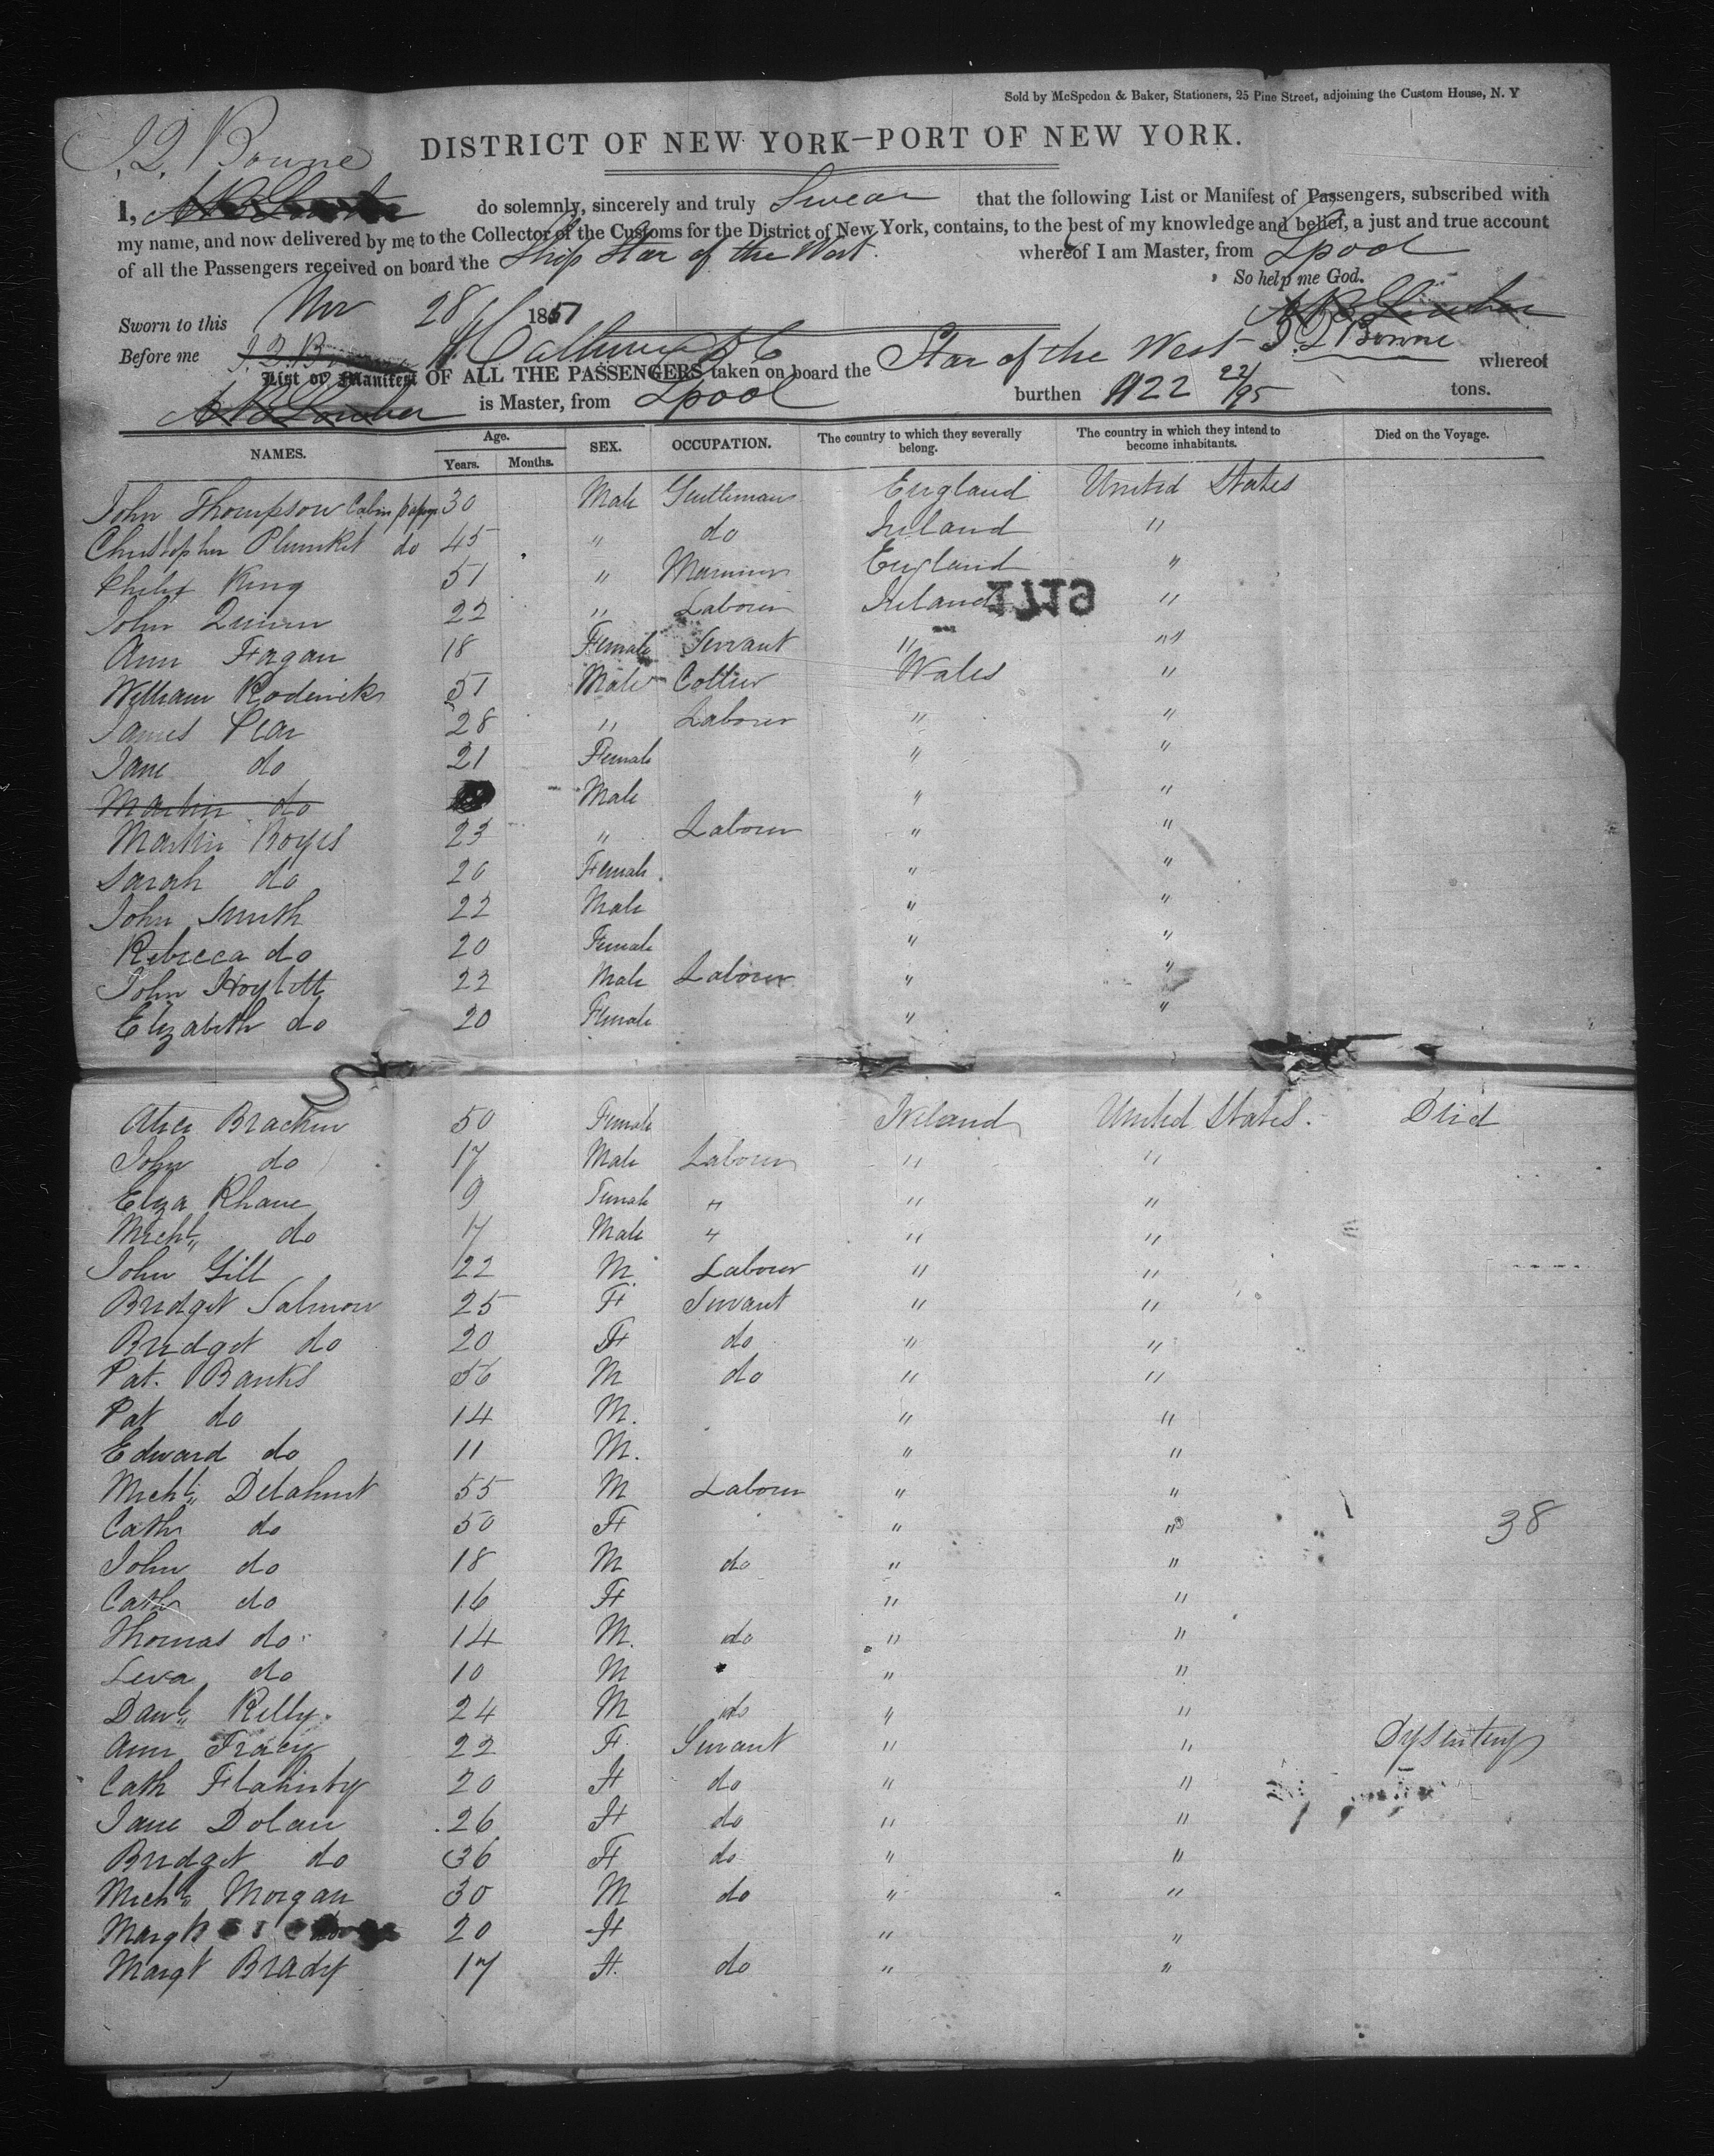 Sold by McSpedon & Baker, Stationers, 25 Pine Street, adjoining the Custom House, N. Y
J. Q. Bowne
DISTRICT OF NEW YORK—PORT OF NEW YORK.
I, do solemnly, sincerely and truly Swear that the following List or Manifest of Passengers, subscribed with
my name, and now delivered by me to the Collector of the Customs for the District of New York, contains, to the best of my knowledge and belief, a just and true account
of all the Passengers received on board the Ship Star of the West. whereof I am Master, from Lpool
So help me God.
Sworn to this Nov 28 1851
J. Q. Bowne
Before me
List or Manifest OF ALL THE PASSENGERS taken on board the Star of the West whereof
is Master, from Lpool burthen 1122 22/95 tons.
NAMES. Age. Years. Months. SEX. OCCUPATION. The country to which they severally belong. The country in which they intend to become inhabitants. Died on the Voyage.
John Thompson Cabin 30 Male Gentleman England United States
Christopher Plunket do 45 " do Ireland "
King 51 " Mariner England "
John Quinn 22 " Labourer Ireland "
1719
Ann Fagan 18 Female Servant " "
William Roderick 51 Male Collier Wales "
James 28 " Labourer " "
Jane do 21 Female " "
Martin do Male " "
Martin Boyes 23 " Labourer " "
Sarah do 20 Female " "
John Smith 22 Male " "
Rebecca do 20 Female " "
John 22 Male Labourer " "
Elizabeth do 20 Female " "
Alice Bracken 50 Female Ireland United States Died
John do 17 Male Labourer " "
Eliza 9 Female " " "
Michl do Male " " "
John Gill 22 M Labourer " "
Bridget Salmon 25 F Servant " "
Bridget do 20 F do " "
Pat. Banks 56 M do " "
Pat do 14 M. " "
Edward do 11 M. " "
Michl Delahunt 55 M Labourer " "
Cath do 50 F " "
38
John do 18 M do " "
Cath do 16 F " "
Thomas do 14 M. do " "
do 10 M " "
Danl Kelly 24 M do " "
Ann Tracy 22 F. Servant " " Dysentery
Cath Flaherty 20 F do " "
Jane Dolan 26 F do " "
Bridget do 36 F do " "
Michl Morgan 30 M do " "
Margt 20 F " "
Margt Brady 17 F. do " "